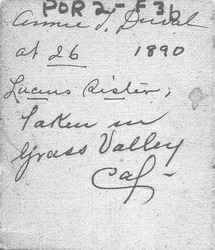 POR 2-F36
Annie T. Duval
at 26 1890
Lucius Sister,
Taken in
Grass Valley
Cal-